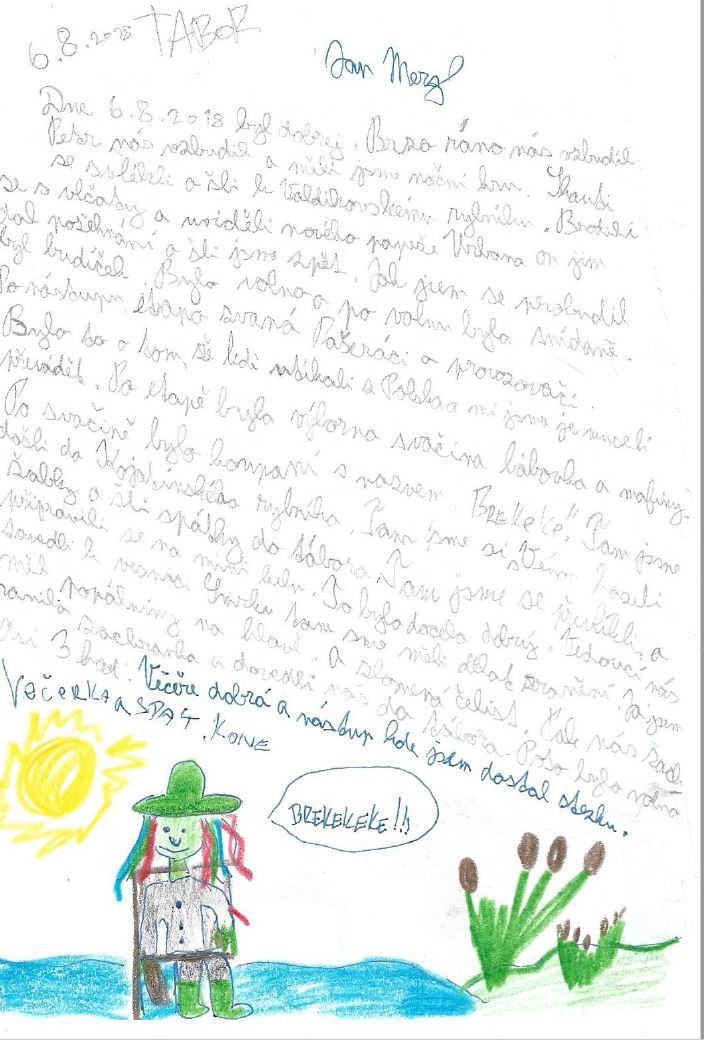 6.8.2018 TÁBOR
Jan Mergl
Dne 6.8.2018 byl dobrej. Brzo ráno nás vzbudil
Petr nás vzbudil a měli jsme noční hru. Skauti
se svlékli a šli k Valdikovskému rybníku. Brodili
se s vlčaty a uviděli nového papeže Urbana on jim
dal požehnání a šli jsme zpět. Jak jsem se probudil
byl budíček. Bylo volno a po volnu byla snídaně.
Po nástupu etapa zvaná Pašeráci a provozovači.
Bylo to o tom, že lidi utíkali z Polska a mi jsme je museli
převádět. Po etapě byla výborna svačina bábovka a mafiny.
Po svačině bylo koupaní s nazvem "BREKEKE". Tam jsme
došli do Kojatínského rybníka. Tam jsme si s házeli
žabky a šli spátky do tábora. Tam jsme se převlíkli a
připravili se na mini hru. To bylo docela dobrý. Vedoucí nás
zavedli k vesnici Smrku tam sme měli dělat zranění. Já jsem
měl popáleniny na hlavě. A zlomená čelist. Pak nás zach
ranila zachranka a dovedli nás do tábora. Poto bylo volno
Asi 3 hod. Véčéře dobrá a nástup kde jsem dostal stezku.
VEČERKA a SPAT. KONE
BREKEKEKE!!!